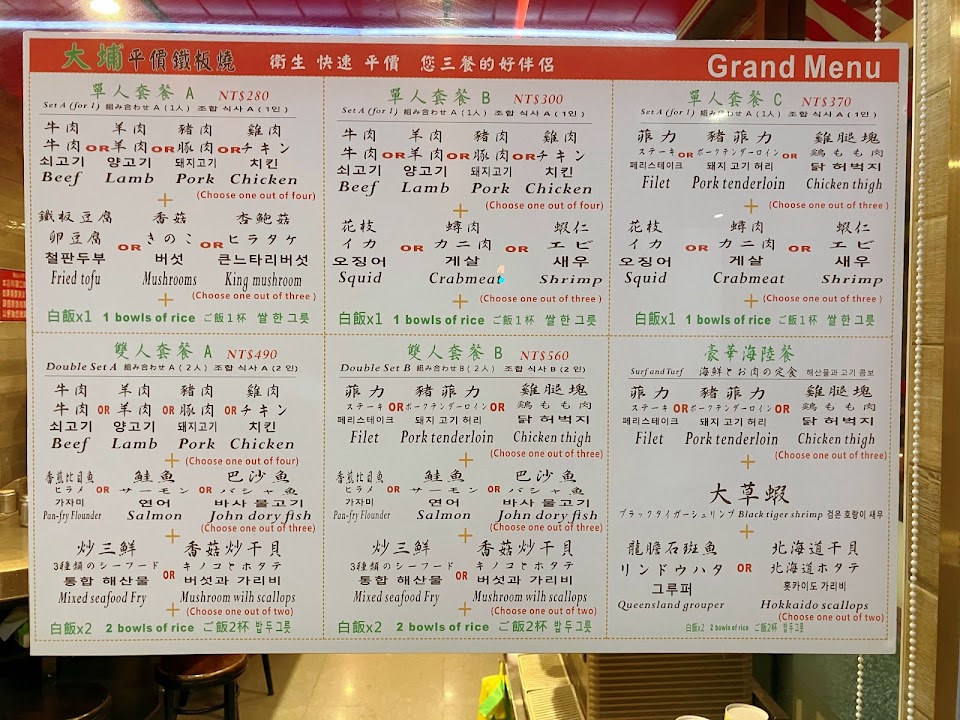 大埔平價鐵板燒 衛生 快速 平價 您三餐的好伴侶 Grand Menu
單人套餐 A NT$280
Set A (for 1) 組み合わせ A (1人) 조합 식사 A (1인)
牛肉 羊肉 豬肉 雞肉
牛肉 OR 羊肉 OR 豚肉 OR チキン
쇠고기 양고기 돼지고기 치킨
Beef Lamb Pork Chicken
+ (Choose one out of four)
鐵板豆腐 香菇 杏鮑菇
卵豆腐 OR きのこ OR ヒラタケ
철판두부 버섯 큰느타리버섯
Fried tofu Mushrooms King mushroom
+ (Choose one out of three)
白飯x1 1 bowls of rice ご飯1杯 쌀 한 그릇
單人套餐 B NT$300
Set A (for 1) 組み合わせ A (1人) 조합 식사 A (1인)
牛肉 羊肉 豬肉 雞肉
牛肉 OR 羊肉 OR 豚肉 OR チキン
쇠고기 양고기 돼지고기 치킨
Beef Lamb Pork Chicken
+ (Choose one out of four)
花枝 蟳肉 蝦仁
イカ OR カニ肉 OR エビ
오징어 게살 새우
Squid Crabmeat Shrimp
+ (Choose one out of three)
白飯x1 1 bowls of rice ご飯1杯 쌀 한 그릇
單人套餐 C NT$370
Set A (for 1) 組み合わせ A (1人) 조합 식사 A (1인)
菲力 豬菲力 雞腿塊
ステーキ OR ポークテンダーロイン OR 鶏もも肉
페리스테이크 돼지 고기 허리 닭 허벅지
Filet Pork tenderloin Chicken thigh
+ (Choose one out of three)
花枝 蟳肉 蝦仁
イカ OR カニ肉 OR エビ
오징어 게살 새우
Squid Crabmeat Shrimp
+ (Choose one out of three)
白飯x1 1 bowls of rice ご飯1杯 쌀 한 그릇
雙人套餐 A NT$490
Double Set A 組み合わせ A (2人) 조합 식사 A (2인)
牛肉 羊肉 豬肉 雞肉
牛肉 OR 羊肉 OR 豚肉 OR チキン
쇠고기 양고기 돼지고기 치킨
Beef Lamb Pork Chicken
+ (Choose one out of four)
香煎比目魚 鮭魚 巴沙魚
ヒラメ OR サーモン OR バシャ魚
가자미 연어 바사 물고기
Pan-fry Flounder Salmon John dory fish
+ (Choose one out of three)
炒三鮮 香菇炒干貝
3種類のシーフード キノコとホタテ
통합 해산물 OR 버섯과 가리비
Mixed seafood Fry Mushroom wilh scallops
+ (Choose one out of two)
白飯x2 2 bowls of rice ご飯2杯 밥 두 그릇
雙人套餐 B NT$560
Double Set B 組み合わせ B (2人) 조합 식사 B (2인)
菲力 豬菲力 雞腿塊
ステーキ OR ポークテンダーロイン OR 鶏もも肉
페리스테이크 돼지 고기 허리 닭 허벅지
Filet Pork tenderloin Chicken thigh
+ (Choose one out of three)
香煎比目魚 鮭魚 巴沙魚
ヒラメ OR サーモン OR バシャ魚
가자미 연어 바사 물고기
Pan-fry Flounder Salmon John dory fish
+ (Choose one out of three)
炒三鮮 香菇炒干貝
3種類のシーフード キノコとホタテ
통합 해산물 OR 버섯과 가리비
Mixed seafood Fry Mushroom wilh scallops
+ (Choose one out of two)
白飯x2 2 bowls of rice ご飯2杯 밥 두 그릇
豪華海陸餐
Surf and Turf 海鮮とお肉の定食 해산물과 고기 콤보
菲力 豬菲力 雞腿塊
ステーキ OR ポークテンダーロイン OR 鶏もも肉
페리스테이크 돼지 고기 허리 닭 허벅지
Filet Pork tenderloin Chicken thigh
+ (Choose one out of three)
大草蝦
ブラックタイガーシュリンプ Black tiger shrimp 검은 호랑이 새우
+
龍膽石斑魚 北海道干貝
リンドウハタ OR 北海道ホタテ
그루퍼 홋카이도 가리비
Queensland grouper Hokkaido scallops
+ (Choose one out of two)
白飯x2 2 bowls of rice ご飯2杯 밥 두 그릇